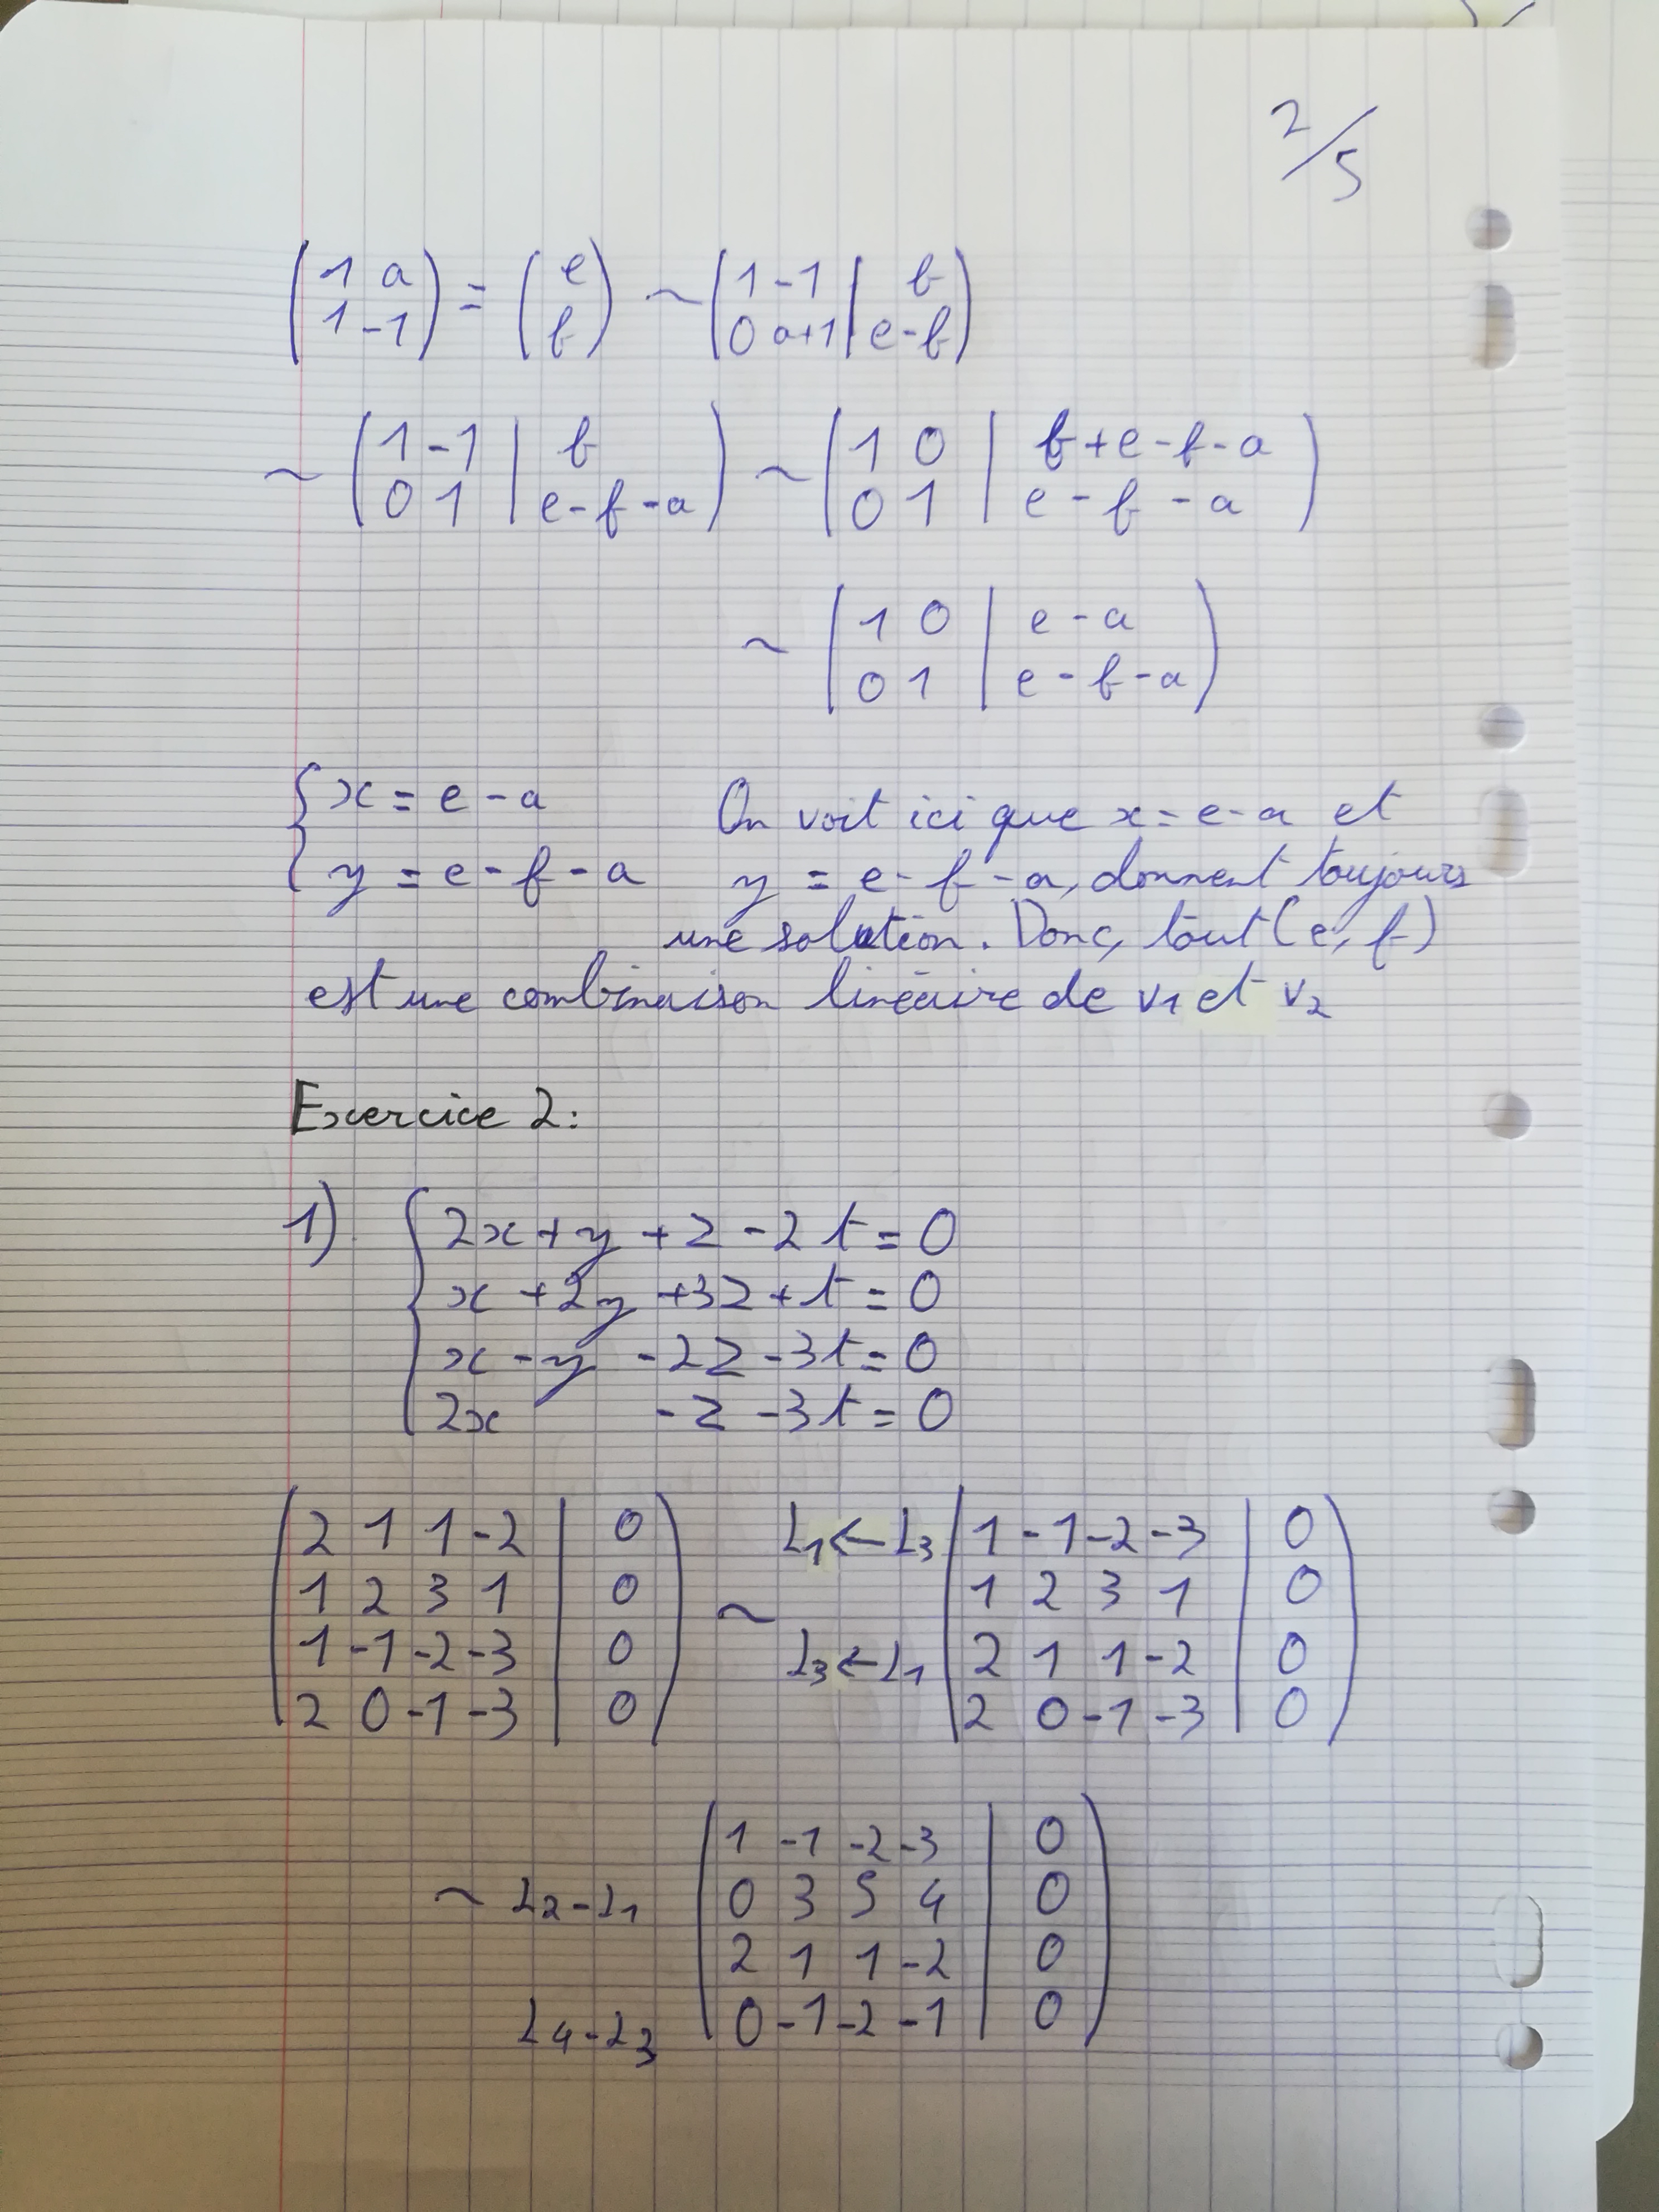 2/5
(1 a) = (e) ~ (1 -1 | f)
(1 -1) (f) (0 a+1 | e-f)
~ (1 -1 | f) ~ (1 0 | f+e-f-a)
(0 1 | e-f-a) (0 1 | e-f-a)
~ (1 0 | e-a)
(0 1 | e-f-a)
{x = e-a On voit ici que x = e-a et
{y = e-f-a y = e-f-a, donnent toujours
une solution. Donc, tout (e, f)
est une combinaison linéaire de v1 et v2
Exercice 2:
1) {2x + y + z - 2t = 0
x + 2y + 3z + t = 0
x - y - 2z - 3t = 0
2x - z - 3t = 0
(2 1 1 -2 | 0) L1 ← L3 (1 -1 -2 -3 | 0)
(1 2 3 1 | 0) ~ (1 2 3 1 | 0)
(1 -1 -2 -3 | 0) L3 ← L1 (2 1 1 -2 | 0)
(2 0 -1 -3 | 0) (2 0 -1 -3 | 0)
(1 -1 -2 -3 | 0)
~ L2-L1 (0 3 5 4 | 0)
(2 1 1 -2 | 0)
L4-L3 (0 -1 -2 -1 | 0)